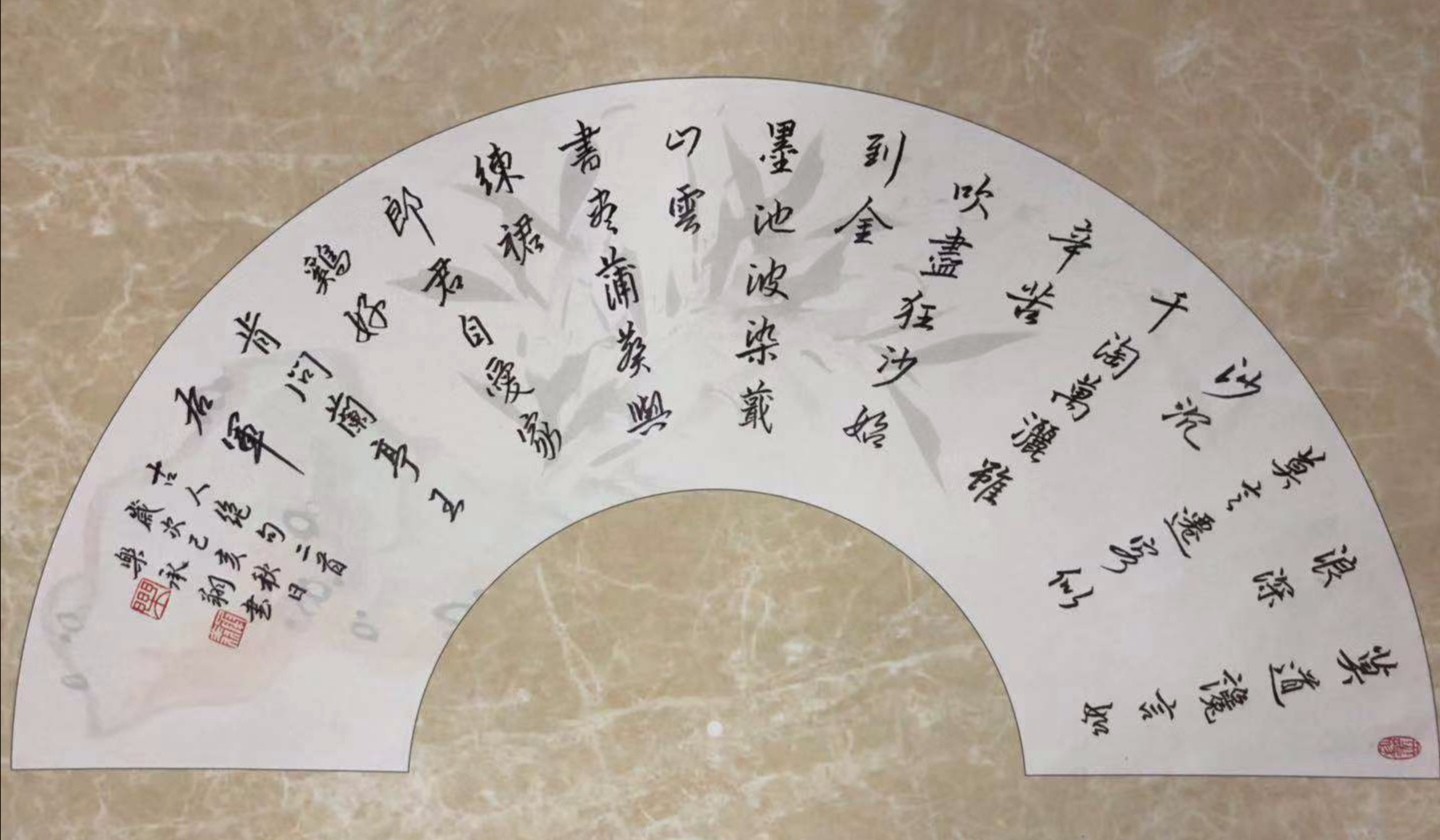 莫道讒言如
浪深
莫言遷客似
沙沉
千淘萬灑雖
辛苦
吹盡狂沙始
到金
墨池波染蕺
山雲
書尽蒲葵與
練裙
郎君自愛家
鷄好
肯問蘭亭王
右軍
古人絕句二首
歲次己亥秋日
樂承翔書